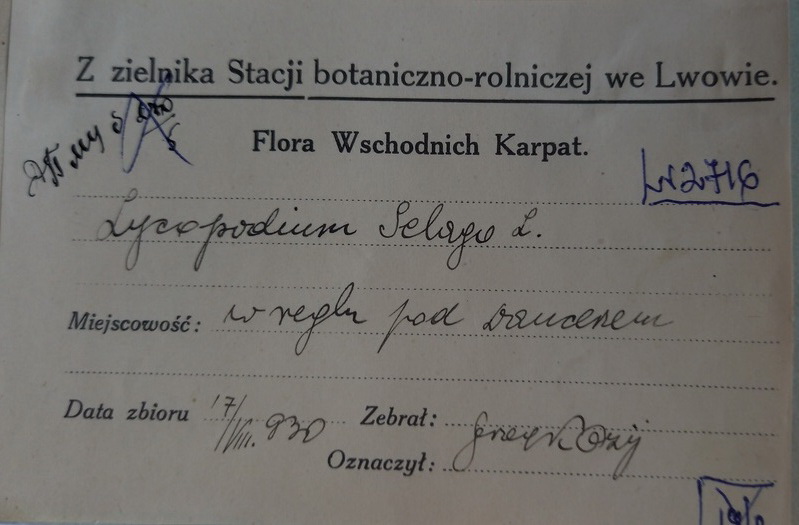 Z zielnika Stacji botaniczno-rolniczej we Lwowie.
Flora Wschodnich Karpat.
2716
Lycopodium Selago L.
Miejscowość: w reglu pod Dancerem
Data zbioru 17/VIII. 930 Zebrał:
Oznaczył: